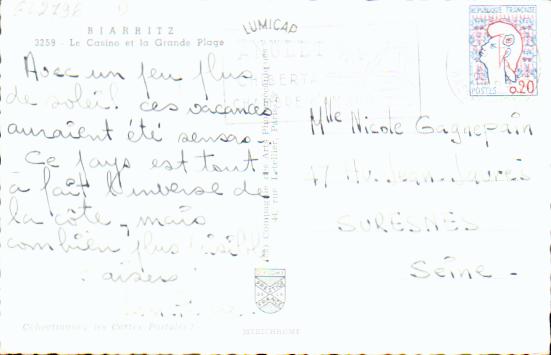 BIARRITZ
3259 - Le Casino et la Grande Plage
LUMICAP
REPUBLIQUE FRANÇAISE
POSTES 0,20
Avec un peu plus
de soleil! ces vacances
auraient été sensas.
Ce pays est tout
à fait l'inverse de
la côte, mais
combien plus
Mlle Nicole Gagnepain
47 Av. Jean Jaurès
SURESNES
Seine -
Collectionnez les Cartes Postales !
MEXICHROME